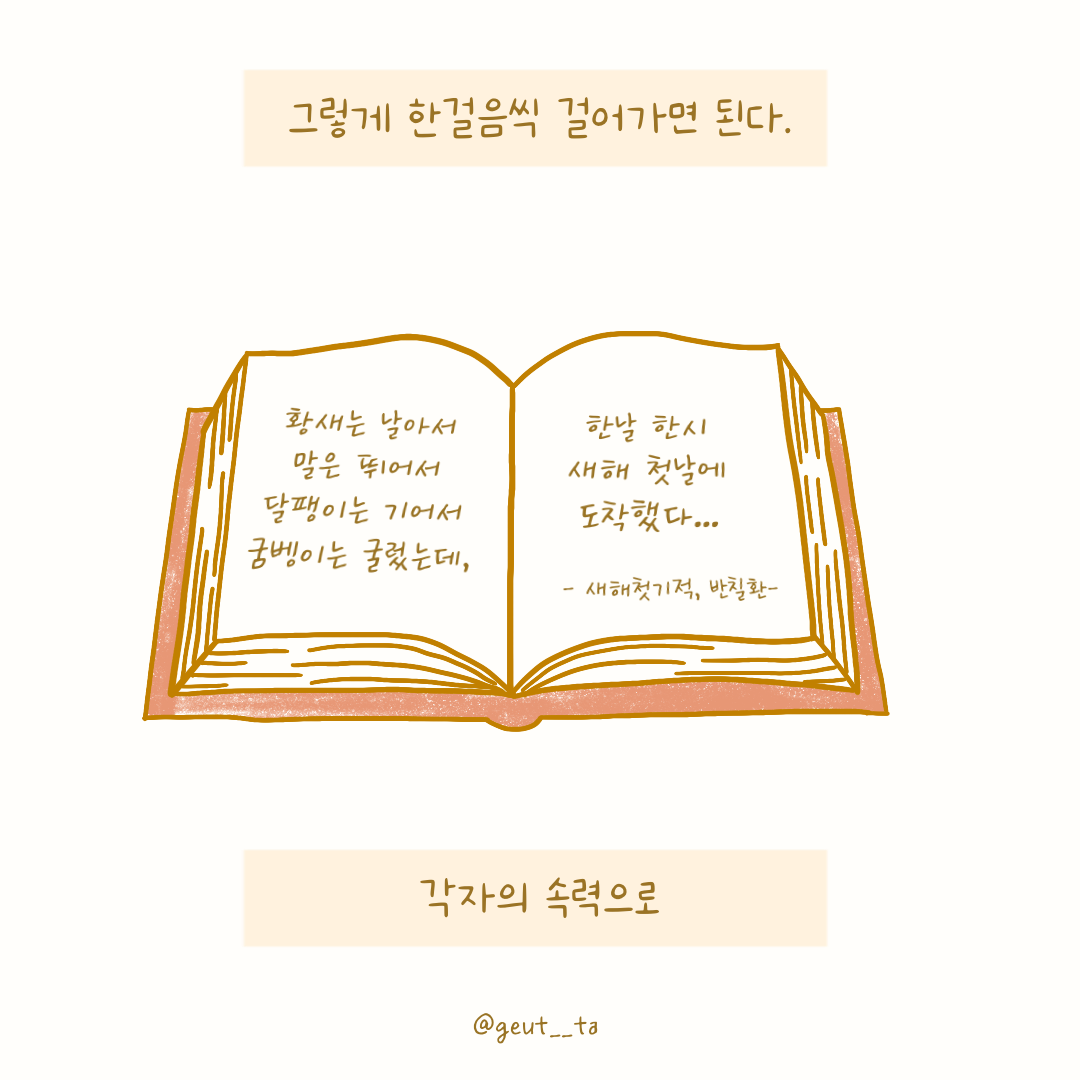 그렇게 한걸음씩 걸어가면 된다.
황새는 날아서
말은 뛰어서
달팽이는 기어서
굼벵이는 굴렀는데,
한날 한시
새해 첫날에
도착했다...
- 새해첫기적, 반칠환-
각자의 속력으로
@geut__ta